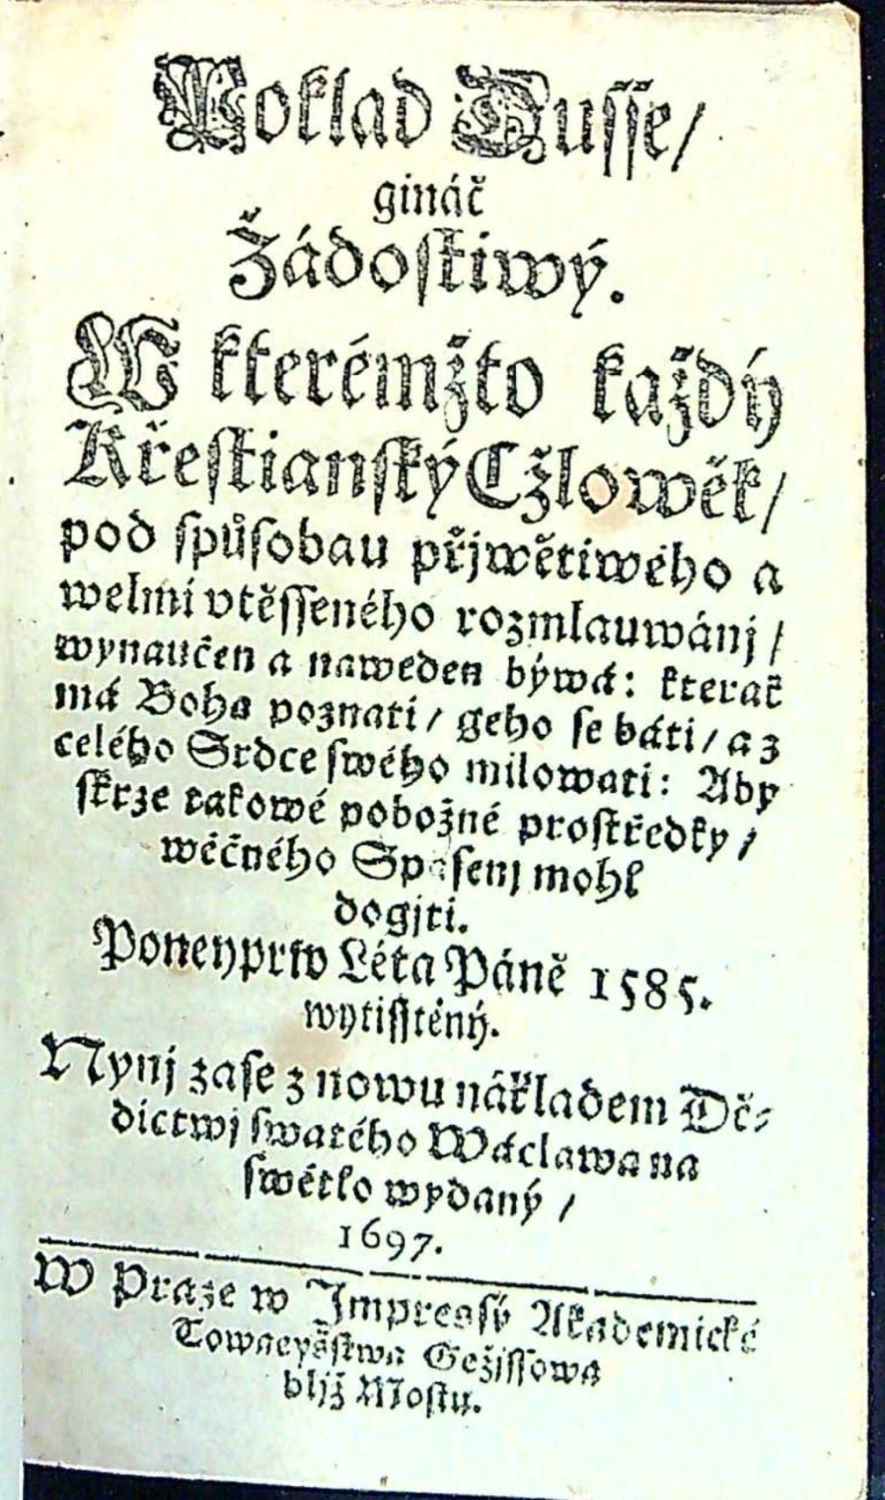 Poklad Dusſe/
gináč
Žádoſtiwý.
W kterémžto každý
Křeſtianſký Cžlowěk/
pod ſpůſobau přjwětiwého a
welmi vtěſſeného rozmlauwánj/
wynaučen a naweden býwá: kterak
má Boha poznati/ geho ſe báti/ a z
celého Srdce ſwého milowati: Aby
ſkrze takowé pobožné proſtředky/
wěčného Spaſenj mohl
dogjti.
Poneyprw Léta Páně 1585.
wytiſſtěný.
Nynj zaſe z nowu nákladem Dě⸗
dictwj ſwatého Wáclawa na
ſwětlo wydaný/
1697.
W Praze w Jmpreſſý Akademické
Towaryšſtwa Gežiſſowa
bljž Moſtu.